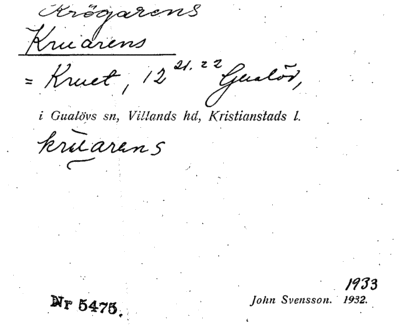 Krögarens
Kruarens
= Kruet, 12 21.22 Gualöv,
i Gualövs sn, Villands hd, Kristianstads l.
krùarens
1933
Nr 5475. John Svensson. 1932.